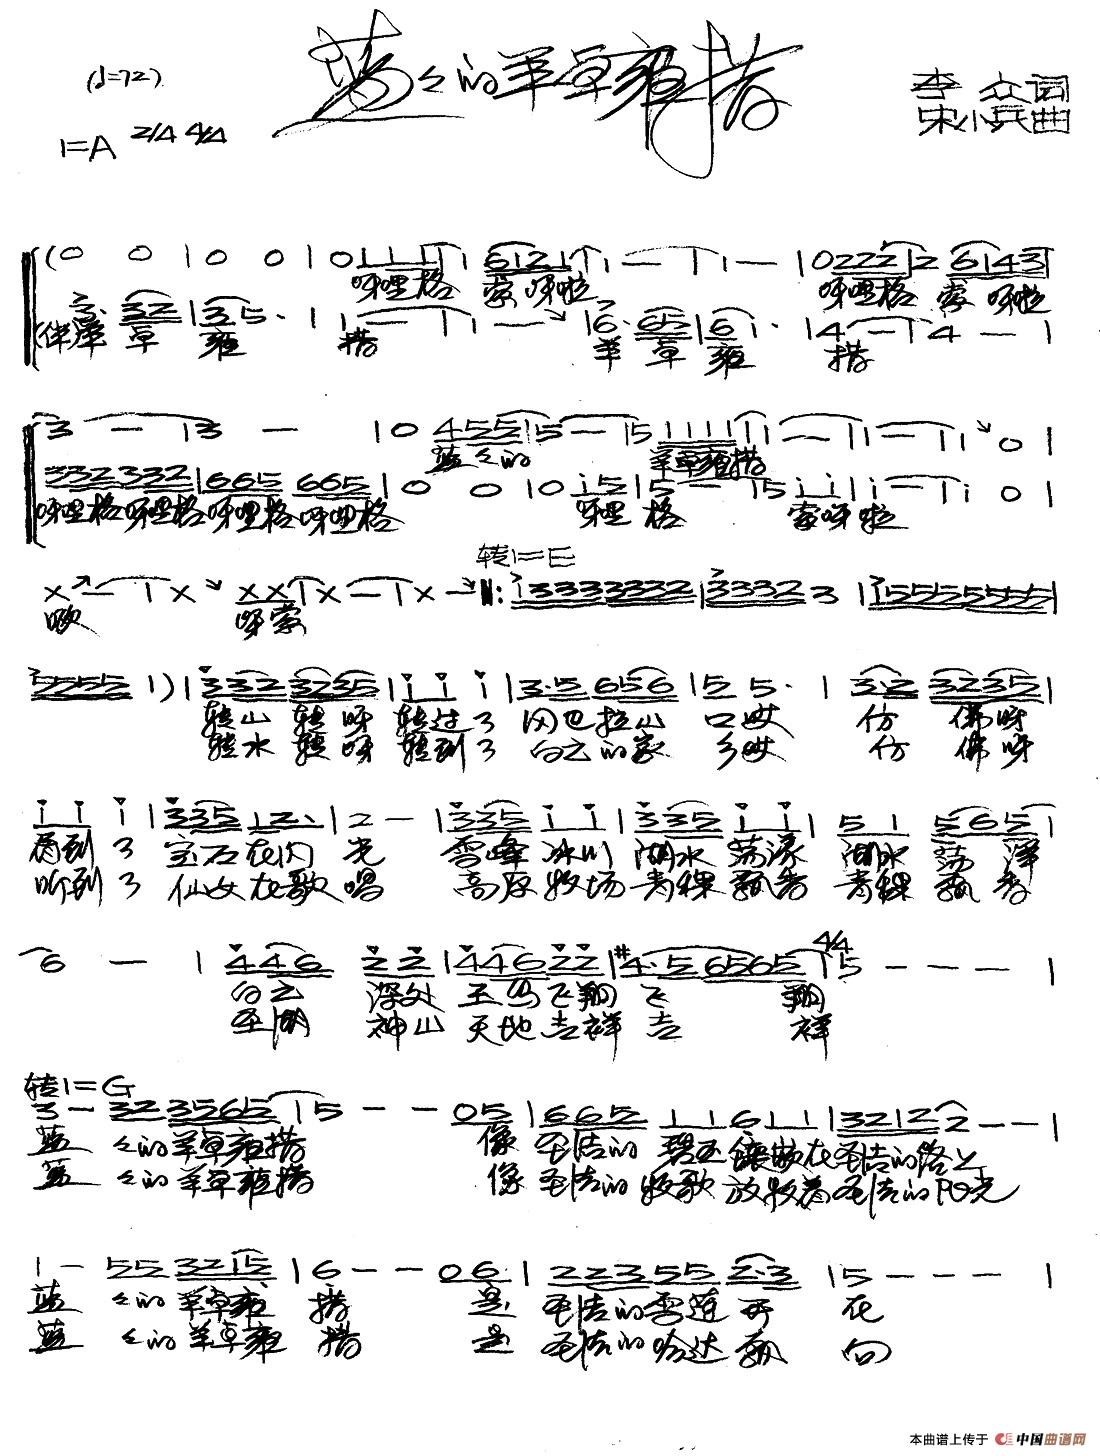 (♩=72)
蓝々的羊卓雍措
李众词
1=A 2/4 4/4
宋小兵曲
(0 0 | 0 0 | 0 1 1 1 1 | 1 6 1 2 1 | 1 — | 1 1 — | 0 2 2 2 | 2 6 1 4 3 |
呀哩格 索呀啦 呀哩格 索呀啦
3· 3 2 | 3 5· | 1 — | 1 — | 6· 6 5 | 6 1· | 4 — | 4 — |
(伴)羊卓雍措 羊卓雍措
3 — | 3 — | 0 4 5 5 | 5 — | 5 1 1 1 1 1 | 1 — | 1 — | 1 0 |
蓝々的 羊卓雍措
3 3 2 3 3 2 | 6 6 5 6 6 5 | 0 0 | 0 i 5 | 5 — | 5 i i | i — | i 0 |
呀哩格呀哩格呀哩格呀哩格 呀哩格 索呀啦
转1=E
x — | x x x | x — | x — ‖: 1 3 3 3 3 3 3 2 | 3 3 3 2 3 | 1 5 5 5 5 5 5 5 |
呀索
5 5 5 5 1 ) | 3 3 2 3 2 3 5 | i i i | 3· 5 6 5 6 | 5 5· | 3· 2 3 2 3 5 |
转山转呀转过了冈巴拉山口哎 仿佛呀
转水转呀转到了白云的家乡哎 仿佛呀
i i i | 3 3 5 1 2· | 2 — | 3 3 5 i i | 3 3 5 i i | 5 1 5 6 5 |
看到了宝石在闪光 雪峰冰川湖水荡漾 湖水荡漾
听到了仙女在歌唱 高原牧场青稞飘香 青稞飘香
6 — | 4 4 6 2 2 | 4 4 6 2 2 | #4· 5 6 5 6 5 | 4/4 5 — — — |
白云深处玉鸟飞翔飞翔
圣湖神山天地吉祥吉祥
转1=G
3 — 3 2 3 5 6 5 | 5 — — 0 5 | 6 6 5 1 1 6 1 1 | 3 2 1 2 2 — — |
蓝々的羊卓雍措 像圣洁的碧玉镶嵌在圣洁的路上
蓝々的羊卓雍措 像圣洁的牧歌放牧着圣洁的阳光
1 — 5 5 3 2 1 5 | 6 — — 0 6 | 2 2 3 5 5 2· 3 | 5 — — — |
蓝々的羊卓雍措 是圣洁的雪莲开在
蓝々的羊卓雍措 是圣洁的哈达飘向
本曲谱上传于 中国曲谱网